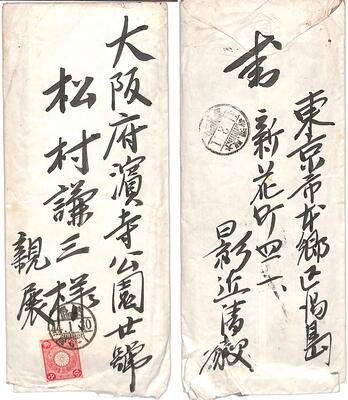 大阪府濱寺公園廿號
松村謙三様
親展
東京市本郷区湯島
新花町四六
日影近清毅